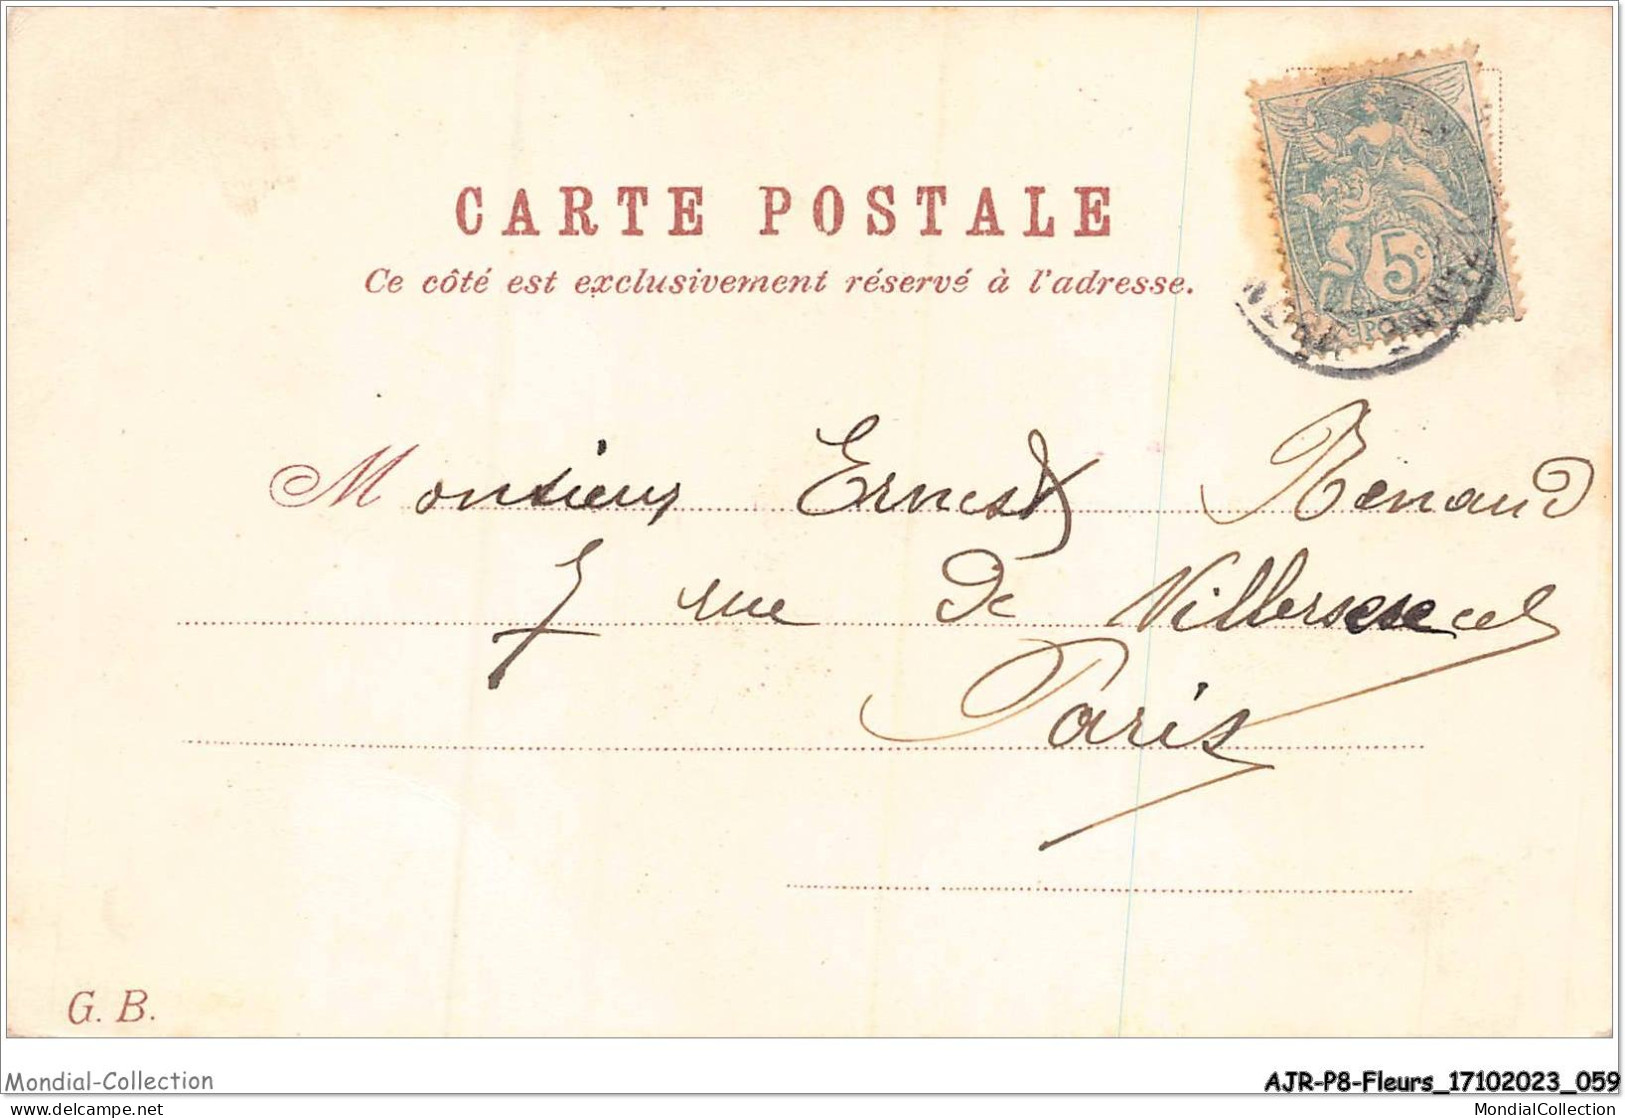 CARTE POSTALE
Ce côté est exclusivement réservé à l'adresse.
5c
Monsieur Ernest Renaud
7 rue de Villersexel
Paris
G. B.
Mondial-Collection
AJR-P8-Fleurs_17102023_059
delcampe.net
MondialCollection